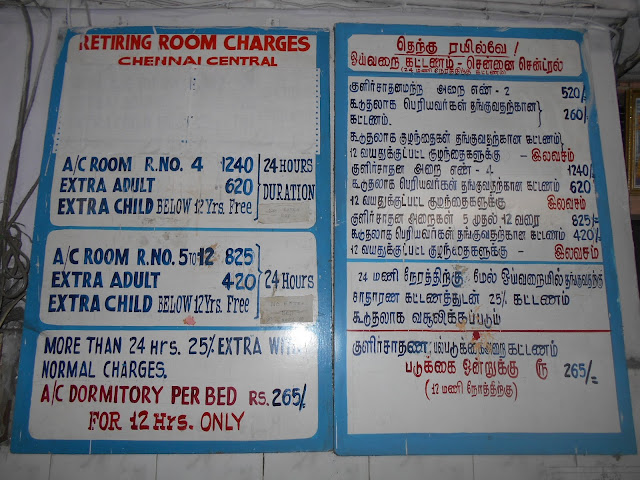 RETIRING ROOM CHARGES
CHENNAI CENTRAL
A/C ROOM R.NO. 4 1240
EXTRA ADULT 620
EXTRA CHILD BELOW 12 Yrs. Free
24 HOURS
DURATION
A/C ROOM R.NO. 5 TO 12 825
EXTRA ADULT 420
EXTRA CHILD BELOW 12 Yrs. Free
24 Hours
MORE THAN 24 Hrs. 25% EXTRA WITH
NORMAL CHARGES.
A/C DORMITORY PER BED RS. 265/-
FOR 12 Hrs. ONLY
தெற்கு ரயில்வே!
ஓய்வறை கட்டணம் - சென்னை சென்ட்ரல்
(24 மணி நேரத்திற்கு கட்டணம்)
குளிர்சாதனமற்ற அறை எண் - 2 520/-
கூடுதலாக பெரியவர்கள் தங்குவதற்கான 260/-
கட்டணம்.
கூடுதலாக குழந்தைகள் தங்குவதற்கான கட்டணம்
12 வயதுக்குட்பட்ட குழந்தைகளுக்கு - இலவசம்
குளிர்சாதன அறை எண் - 4. 1240/-
கூடுதலாக பெரியவர்கள் தங்குவதற்கான கட்டணம் 620
12 வயதுக்குட்பட்ட குழந்தைகளுக்கு - இலவசம்
குளிர்சாதன அறைகள் 5 முதல் 12 வரை 825/-
கூடுதலாக பெரியவர்கள் தங்குவதற்கான கட்டணம் 420/-
12 வயதுக்குட்பட்ட குழந்தைகளுக்கு - இலவசம்
24 மணி நேரத்திற்கு மேல் ஓய்வறையில் தங்குவதற்கு
சாதாரண கட்டணத்துடன் 25% கட்டணம்
கூடுதலாக வசூலிக்கப்படும்
குளிர்சாதண பல்படுக்கை அறை கட்டணம்
படுக்கை ஒன்றுக்கு ரூ 265/-
(12 மணி நேரத்திற்கு)